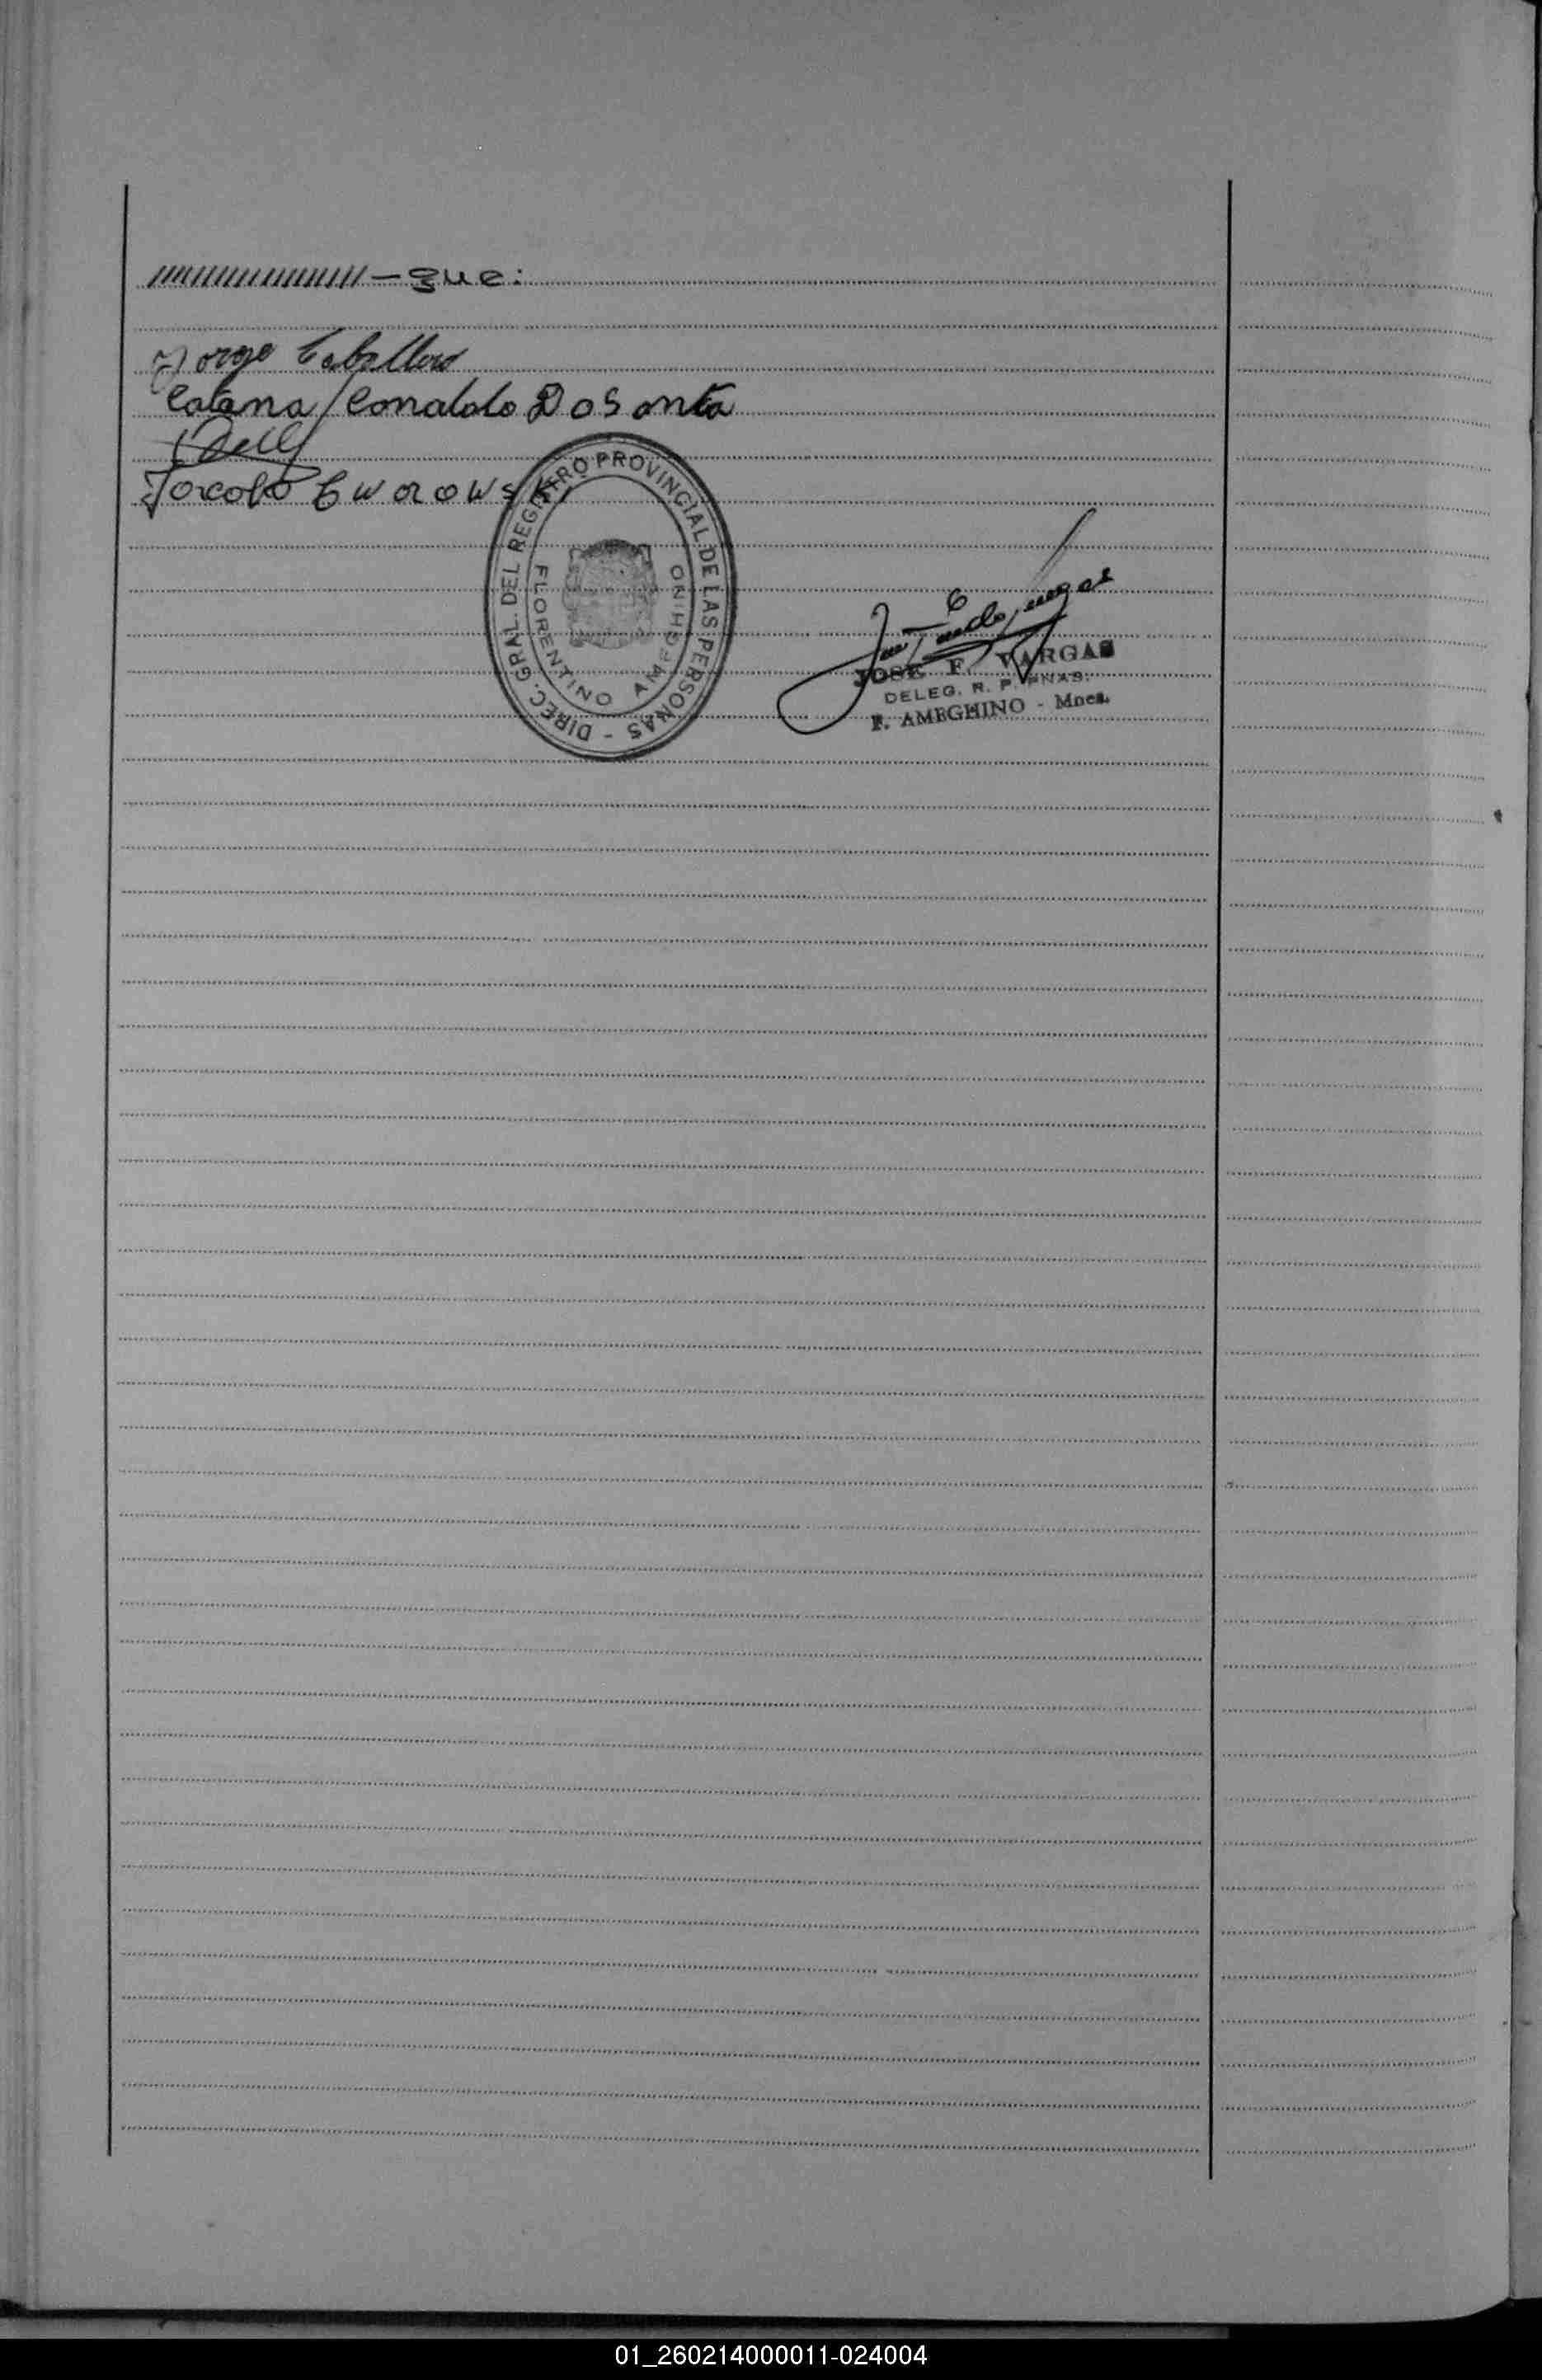 ////////////////// - que:
Jorge Caballero
Catana Conaldo Dosanta
Jacobo Cwarowski
DIREC. GRAL. DEL REGISTRO PROVINCIAL DE LAS PERSONAS -
FLORENTINO AMEGHINO
JOSE F. VARGAS
DELEG. R. P. PNAS.
F. AMEGHINO - Mnes.
01_260214000011-024004